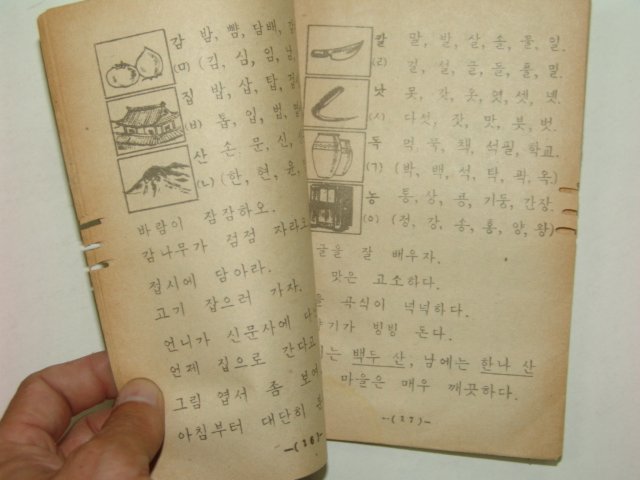 감 밥, 뺨, 담배,
(ㅁ) (김, 심, 임,
집 밥, 삽, 탑,
(ㅂ) 톱, 입, 법,
산 손 문, 신,
(ㄴ) (한, 현, 윤,
바람이 잠잠하오.
감나무가 점점 자라오
접시에 담아라.
고기 잡으러 가자.
언니가 신문사에
언제 집으로 간다고
그림 엽서 좀 보여
아침부터 대단히
-(26)-
칼 말, 발, 살, 손, 물, 일.
(ㄹ) 길, 설, 글, 돌, 풀, 밀.
낫 못, 갓, 옷, 엿, 셋, 넷.
(ㅅ) 다섯, 잣, 맛, 붓, 벗.
독 먹, 묵, 책, 석필, 학교.
(ㄱ) (박, 백, 석, 탁, 곽, 옥.)
농 통, 상, 콩, 기둥, 간장.
(ㅇ) (정, 강, 송, 홍, 양, 왕)
글을 잘 배우자.
맛은 고소하다.
곡식이 넉넉하다.
빙빙 돈다.
는 백두 산, 남에는 한나 산
마을은 매우 깨끗하다.
-(27)-